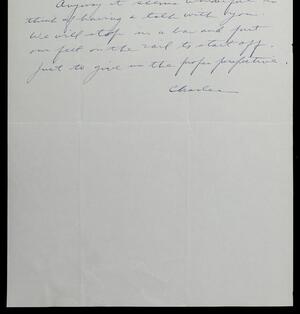 Anyway it seems wonderful to
think of having a talk with you.
We will stop in a bar and put
our feet on the rail to start off.
Just to give us the proper perspective.
Charles